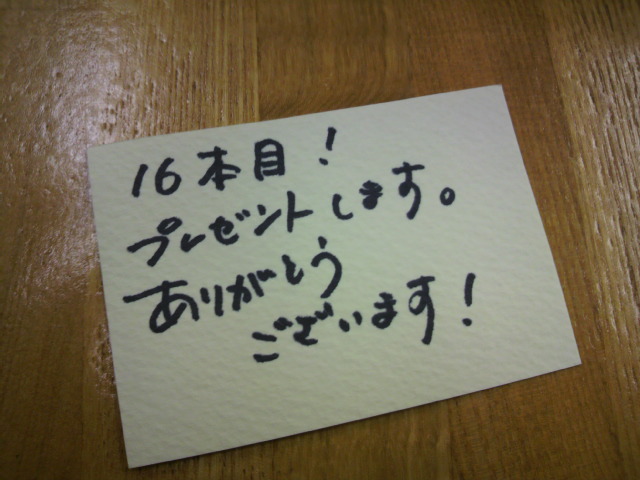 16本目!
プレゼントします。
ありがとう
ございます!